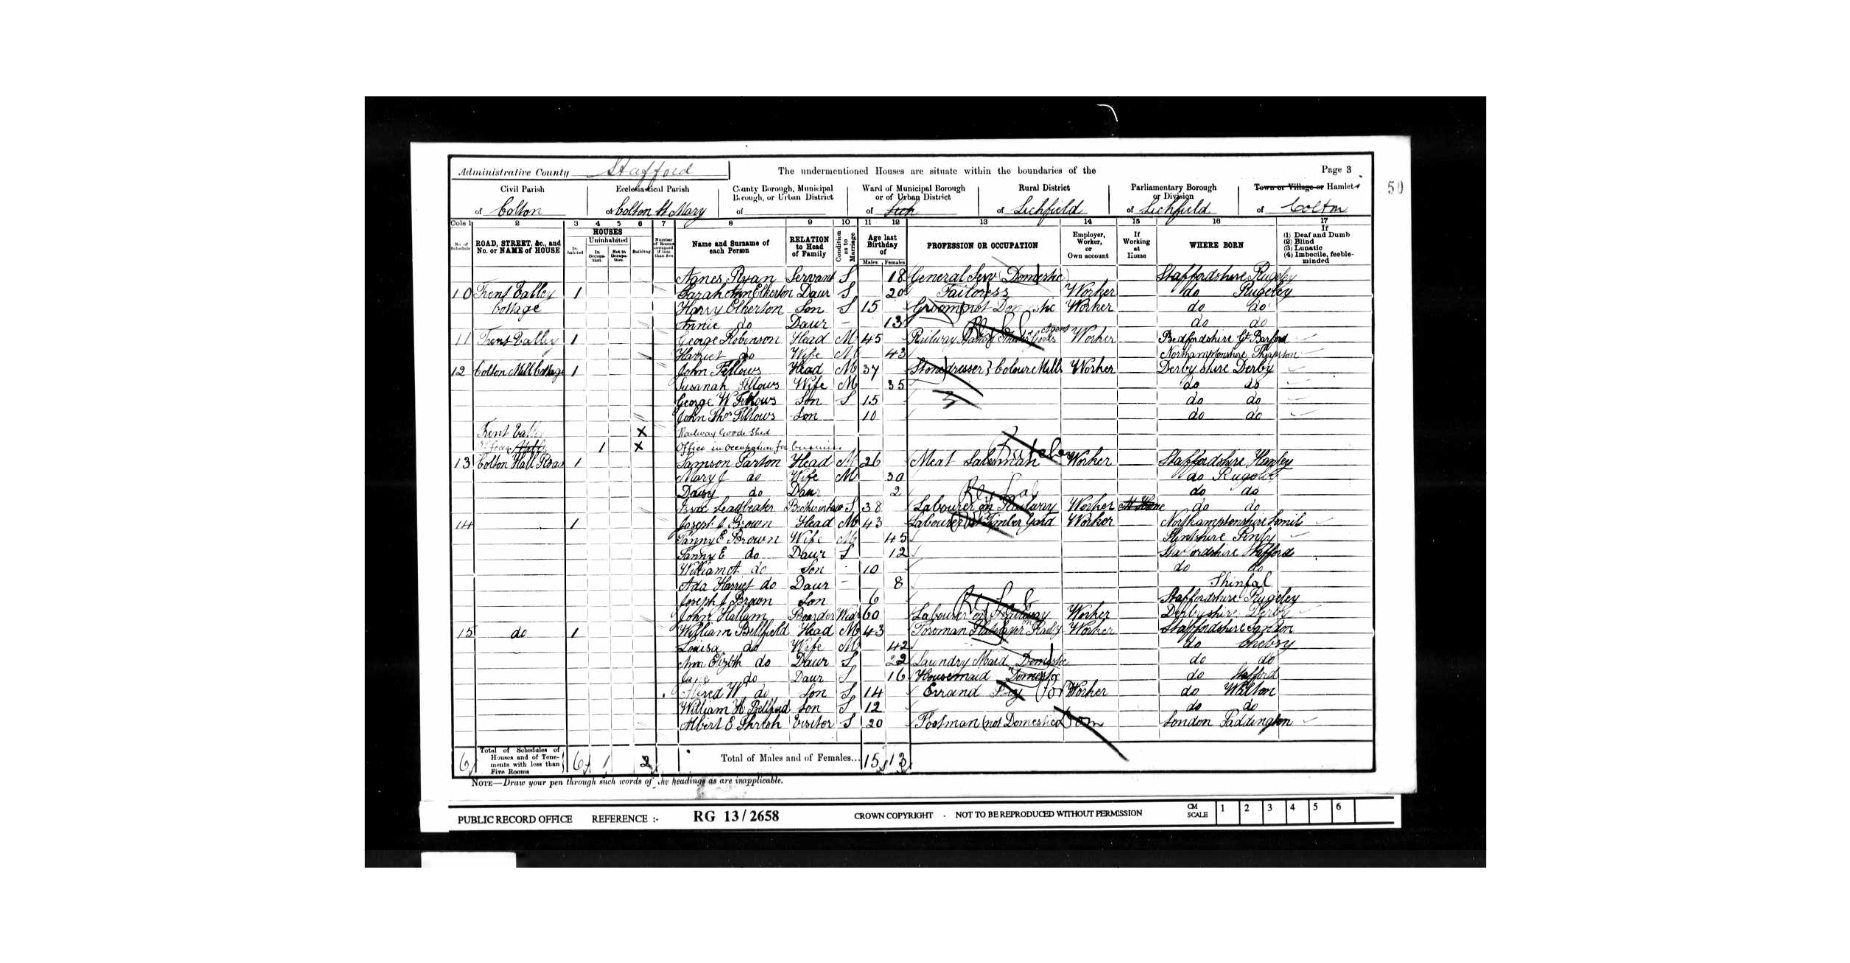 Administrative County Stafford The undermentioned Houses are situate within the boundaries of the Page 3
Civil Parish Ecclesiastical Parish County Borough, Municipal Borough, or Urban District Ward of Municipal Borough or of Urban District Rural District Parliamentary Borough or Division Town or Village or Hamlet
50
of Colton of Colton St Mary of of of Lichfield of Lichfield of Colton
Cols 1 2 3 4 5 6 7 8 9 10 11 12 13 14 15 16 17
No. of Schedule ROAD, STREET, &c., and No. or NAME of HOUSE HOUSES In-habited Uninhabited In Occupation Not in Occupation Building Name and Surname of each Person RELATION to Head of Family Condition as to Marriage Age last Birthday of Males Females PROFESSION OR OCCUPATION Employer, Worker, or Own account If Working at Home WHERE BORN If (1) Deaf and Dumb (2) Blind (3) Lunatic (4) Imbecile, feeble-minded
Agnes Ryan Servant S 18 General Serv (Domestic) Staffordshire Rugeley
10 Trent Valley 1 Sarah Ann Etherton Daur S 20 Tailoress Worker do Rugeley
Cottage Harry Etherton Son S 15 Groom not Domestic Worker do do
Annie do Daur – 13 do do
11 Trent Valley 1 George Robinson Head M 45 Railway Worker Bedfordshire Gt Barford
Harriet do Wife M 43 Northamptonshire Thrapston
12 Colton Mill Cottage 1 John Fellows Head M 37 Stonedresser } Colour Mills Worker Derbyshire Derby
Susanah Fellows Wife M 35 do do
George W Fellows Son S 15 do do
John Thos Fellows Son 10 do do
Trent Valley X Railway Goods Shed
1 X Office in Occupation for business
13 Colton Hall Road 1 Samson Sarton Head M 26 Meat Salesman Worker Staffordshire Hanley
Mary J do Wife M 30 do Rugeley
Daisy do Daur 2 do do
Leadbeater S 38 Labourer on Railway Worker do do
14 1 Joseph J Brown Head M 43 Labourer in Timber Yard Worker Northamptonshire
Fanny E Brown Wife M 45 Flintshire
Fanny E do Daur S 12 Staffordshire Stafford
William A do Son 10 do do
Ada Harriet do Daur – 8
Joseph J Brown Son 6 Staffordshire Rugeley
John Hallam Boarder Wid 60 Labourer on Railway Worker Derbyshire Derby
15 do 1 William Bellfield Head M 43 Foreman Worker Staffordshire Sandon
Louisa do Wife M 42 do
Ann Elizth do Daur S 22 Laundry Maid Domestic do do
do Daur S 16 Housemaid Domestic do Stafford
Alfred W do Son S 14 Errand Boy Worker do Walton
William H Bellfield Son S 12 do do
Albert E Visitor S 20 Postman (not Domestic) London Paddington
6 Total of Schedules of Houses and of Tenements with less than Five Rooms 6 1 2 Total of Males and of Females... 15 13
NOTE—Draw your pen through such words of the headings as are inapplicable.
PUBLIC RECORD OFFICE REFERENCE :- RG 13 / 2658 CROWN COPYRIGHT - NOT TO BE REPRODUCED WITHOUT PERMISSION CM SCALE 1 2 3 4 5 6